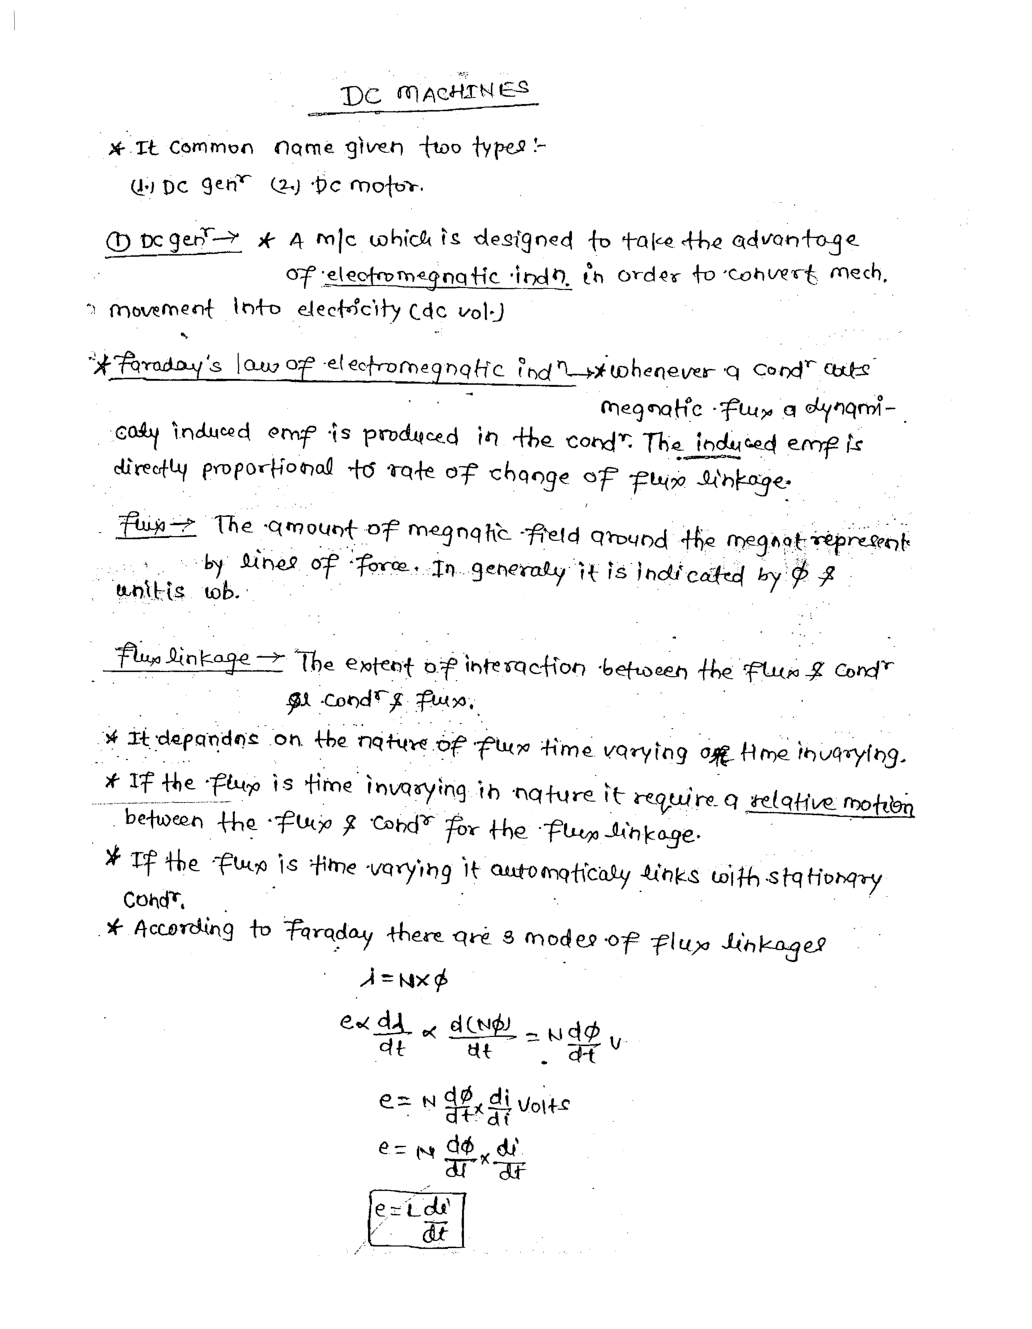 DC MACHINES
* It common name given two types :-
(1.) DC genr (2.) DC motor.
① DC genr → * A m/c which is designed to take the advantage
of electromegnatic indn. in order to convert mech.
movement into electricity (dc vol.)
* Faraday's law of electromegnatic indn → * whenever a condr cuts
megnatic flux a dynami-
caly induced emf is produced in the condr. The induced emf is
directly proportional to rate of change of flux linkage.
flux → The amount of megnatic field around the megnat represent
by lines of force. In generaly it is indicated by φ &
unit is wb.
Flux linkage → The extent of interaction between the flux & condr
condr & flux.
* It depandns on the nature of flux time varying or time invarying.
* If the flux is time invarying in nature it require a relative motion
between the flux & condr for the flux linkage.
* If the flux is time varying it automaticaly links with stationary
condr.
* According to Faraday there are 3 modes of flux linkages
λ = N×φ
e ∝ dλ/dt ∝ d(Nφ)/dt = N dφ/dt V
e = N dφ/dt × di/di volts
e = N dφ/di × di/dt
e = L di/dt